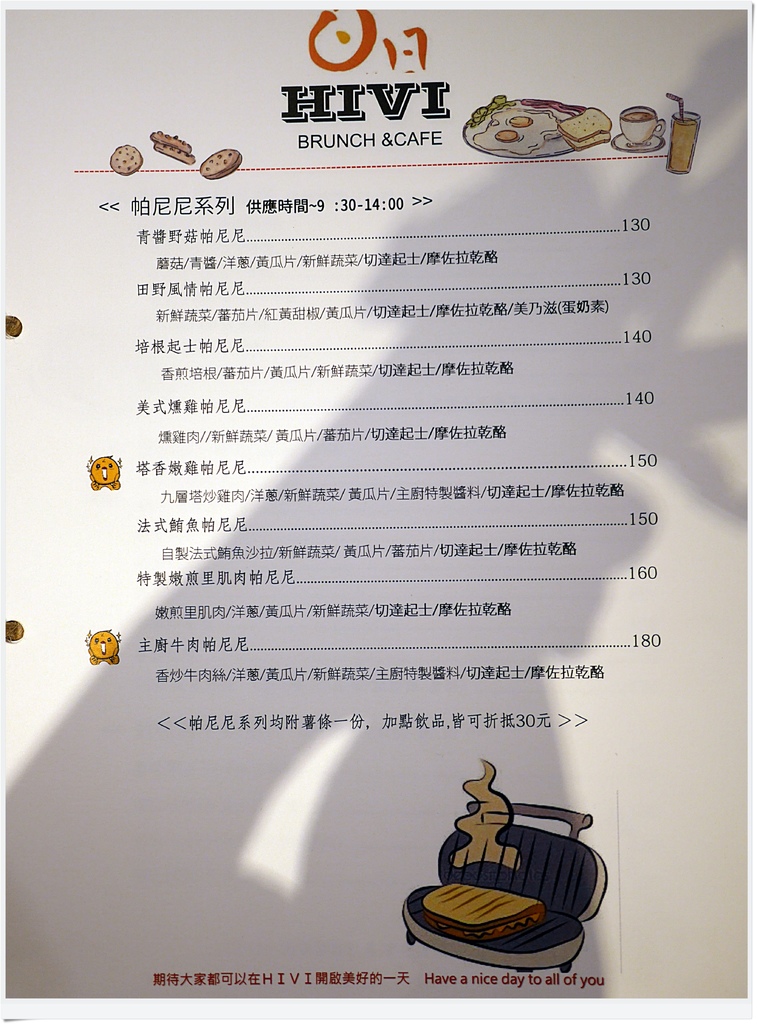 日日
HIVI
BRUNCH &CAFE
<< 帕尼尼系列 供應時間~9 :30-14:00 >>
青醬野菇帕尼尼......130
蘑菇/青醬/洋蔥/黃瓜片/新鮮蔬菜/切達起士/摩佐拉乾酪
田野風情帕尼尼......130
新鮮蔬菜/蕃茄片/紅黃甜椒/黃瓜片/切達起士/摩佐拉乾酪/美乃滋(蛋奶素)
培根起士帕尼尼......140
香煎培根/蕃茄片/黃瓜片/新鮮蔬菜/切達起士/摩佐拉乾酪
美式燻雞帕尼尼......140
燻雞肉//新鮮蔬菜/ 黃瓜片/蕃茄片/切達起士/摩佐拉乾酪
塔香嫩雞帕尼尼......150
九層塔炒雞肉/洋蔥/新鮮蔬菜/ 黃瓜片/主廚特製醬料/切達起士/摩佐拉乾酪
法式鮪魚帕尼尼......150
自製法式鮪魚沙拉/新鮮蔬菜/ 黃瓜片/蕃茄片/切達起士/摩佐拉乾酪
特製嫩煎里肌肉帕尼尼......160
嫩煎里肌肉/洋蔥/黃瓜片/新鮮蔬菜/切達起士/摩佐拉乾酪
主廚牛肉帕尼尼......180
香炒牛肉絲/洋蔥/黃瓜片/新鮮蔬菜/主廚特製醬料/切達起士/摩佐拉乾酪
<<帕尼尼系列均附薯條一份, 加點飲品,皆可折抵30元 >>
期待大家都可以在HIVI開啟美好的一天 Have a nice day to all of you